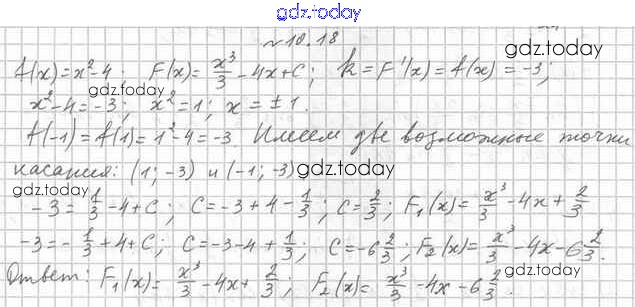 gdz.today
№ 10.18
f(x) = x² - 4; F(x) = x³/3 - 4x + C; k = F'(x) = f(x) = -3;
gdz.today
gdz.today
x² - 4 = -3; x² = 1; x = ±1.
f(-1) = f(1) = 1² - 4 = -3. Имеем две возможные точки
касания: (1; -3) и (-1; -3)
gdz.today
gdz.today
-3 = 1/3 - 4 + C; C = -3 + 4 - 1/3; C = 2/3; F₁(x) = x³/3 - 4x + 2/3
-3 = -1/3 + 4 + C; C = -3 - 4 + 1/3; C = -6 2/3; F₂(x) = x³/3 - 4x - 6 2/3.
gdz.today
Ответ: F₁(x) = x³/3 - 4x + 2/3; F₂(x) = x³/3 - 4x - 6 2/3.